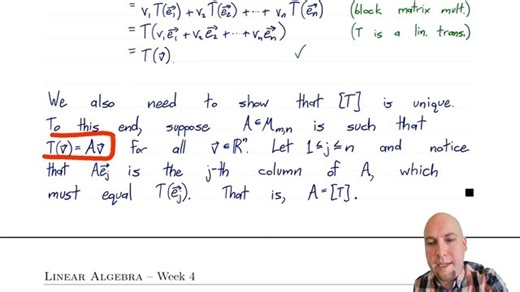 = v₁T(e₁⃗) + v₂T(e₂⃗) + ··· + vₙT(eₙ⃗) (block matrix mult.)
= T(v₁e₁⃗ + v₂e₂⃗ + ··· + vₙeₙ⃗) (T is a lin. trans.)
= T(v⃗). ✓
We also need to show that [T] is unique.
To this end, suppose A∈Mₘ,ₙ is such that
T(v⃗) = Av⃗ for all v⃗∈ℝⁿ. Let 1≤j≤n and notice
that Aeⱼ⃗ is the j-th column of A, which
must equal T(eⱼ⃗). That is, A = [T]. ■
LINEAR ALGEBRA – Week 4